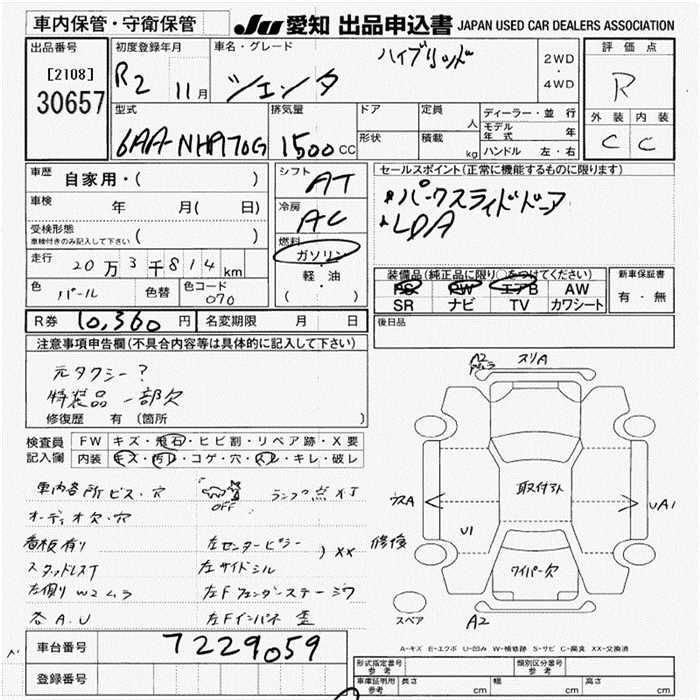 車内保管・守衛保管 JU 愛知 出品申込書 JAPAN USED CAR DEALERS ASSOCIATION
出品番号
[2108]
30657
初度登録年月
R2 11月
車名・グレード
ハイブリッド
シエンタ
2WD
・
4WD
評価点
R
外装 内装
C C
型式
6AA NHP170G
排気量
1500cc
ドア
形状
定員
人
積載
kg
ディーラー・並行
モデル年式 年
ハンドル 左・右
車歴 自家用・( )
車検 年 月( 日)
受検形態
車検付きのみ記入して下さい ( )
走行 20万3千814km
色 パール 色替 色コード 070
シフト AT
冷房 AC
燃料
ガソリン
軽・油
( )
セールスポイント(正常に機能するものに限ります)
*パワースライドドア
*LDA
装備品(純正品に限り○をつけてください)
PS PW エアB AW
SR ナビ TV カワシート
新車保証書
有・無
R券 10,360円 名変期限 月 日
後日品
注意事項申告欄(不具合内容等は具体的に記入して下さい)
元タクシー?
特装品一部欠
修復歴 有(箇所 )
検査員記入欄
FW キズ・飛石・ヒビ割・リペア跡・X要
内装 キズ・汚れ・コゲ・穴・スレ・キレ・破レ
車内各所ビス・穴
OFF
ランプ点灯
オーディオ欠・穴
看板有り
左センターピラー
スタッドレスT
左サイドシル
) XX 修復
左側りW2ムラ
各A.U
A2
スリA
ウスA
UA1
U1
取付欠
ワイパー欠
スペア
A2
A-キズ E-エクボ U-凹み W-補修跡 S-サビ C-腐食 XX-交換済
車台番号 7229059
登録番号
形式指定番号 参考
類別区分番号 参考
車庫証明用 参考
長さ cm 幅 cm 高さ cm